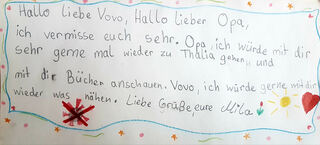 Hallo liebe Vovo, Hallo lieber Opa,
ich vermisse euch sehr. Opa, ich würde mit dir
sehr gerne mal wieder zu Thalia gehen, und
mit dir Bücher anschauen. Vovo, ich würde gerne mit dir
wieder was nähen. Liebe Grüße, eure Mila